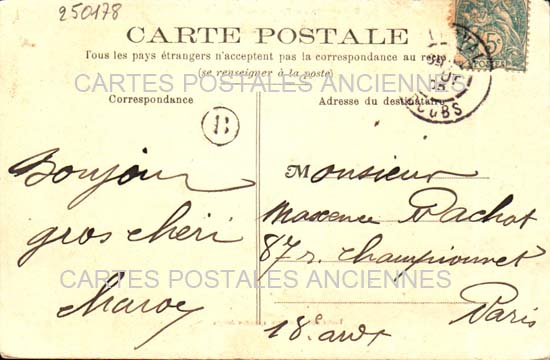 250178
CARTE POSTALE
Tous les pays étrangers n'acceptent pas la correspondance au re
(se renseigner à la poste)
CARTES POSTALES ANCIENNES
Correspondance
Adresse du destinataire
B
DOUBS
5
POSTES
Bonjour
gros chéri
Monsieur
Maxence Pachot
87 r. Championnet
Paris
18e ardt
CARTES POSTALES ANCIENNES